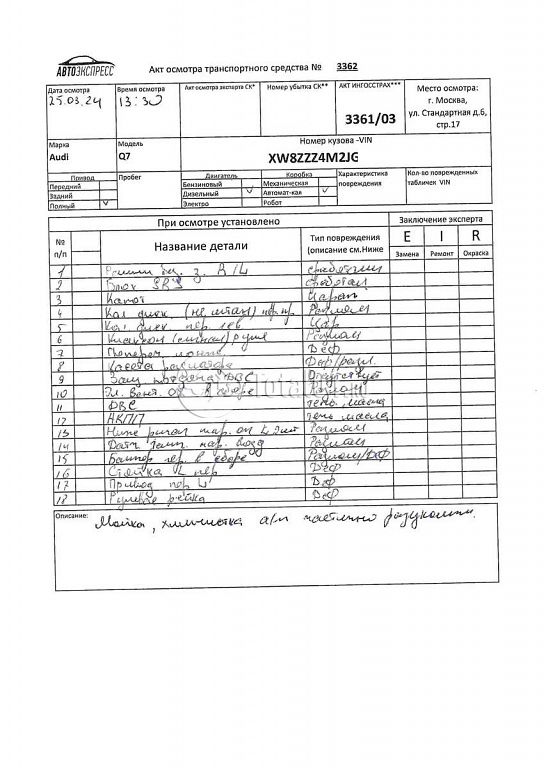 АВТОЭКСПРЕСС
Акт осмотра транспортного средства № 3362
Дата осмотра
25.03.24
Время осмотра
13:30
Акт осмотра эксперта СК*
Номер убытка СК**
АКТ ИНГОССТРАХ***
3361/03
Место осмотра:
г. Москва,
ул. Стандартная д.6,
стр.17
Марка
Audi
Модель
Q7
Номер кузова -VIN
XW8ZZZ4M2JG
Привод
Передний
Задний
Полный V
Пробег
Двигатель
Бензиновый
Дизельный V
Электро
Коробка
Механическая
Автомат-кая V
Робот
Характеристика
повреждения
Кол-во поврежденных
табличек VIN
При осмотре установлено
Заключение эксперта
№
п/п
Название детали
Тип повреждения
(описание см.Ниже
E I R
Замена Ремонт Окраска
1 з. R/L
2 Блок SRS Сработал
3 Капот Царап
4 Кол. диск (не штат) пер. пр Разлом
5 Кол. диск пер. лев Цар
6 руля Разлом
7 Деф
8 Кассета
9 ДВС Отсутствует
10 Эл. вент. в сборе Разлом
11 ДВС течь масла
12 АКПП течь масла
13 Ниж рычаг пер. Разлом
14 Датч темп. нар. возд Разлом
15 Бампер пер. в сборе Разлом/Деф
16 Стойка L пер Деф
17 Привод пер L Деф
18 Рулевая рейка Деф
Описание: Мойка, химчистка а/м частично разукомпл.